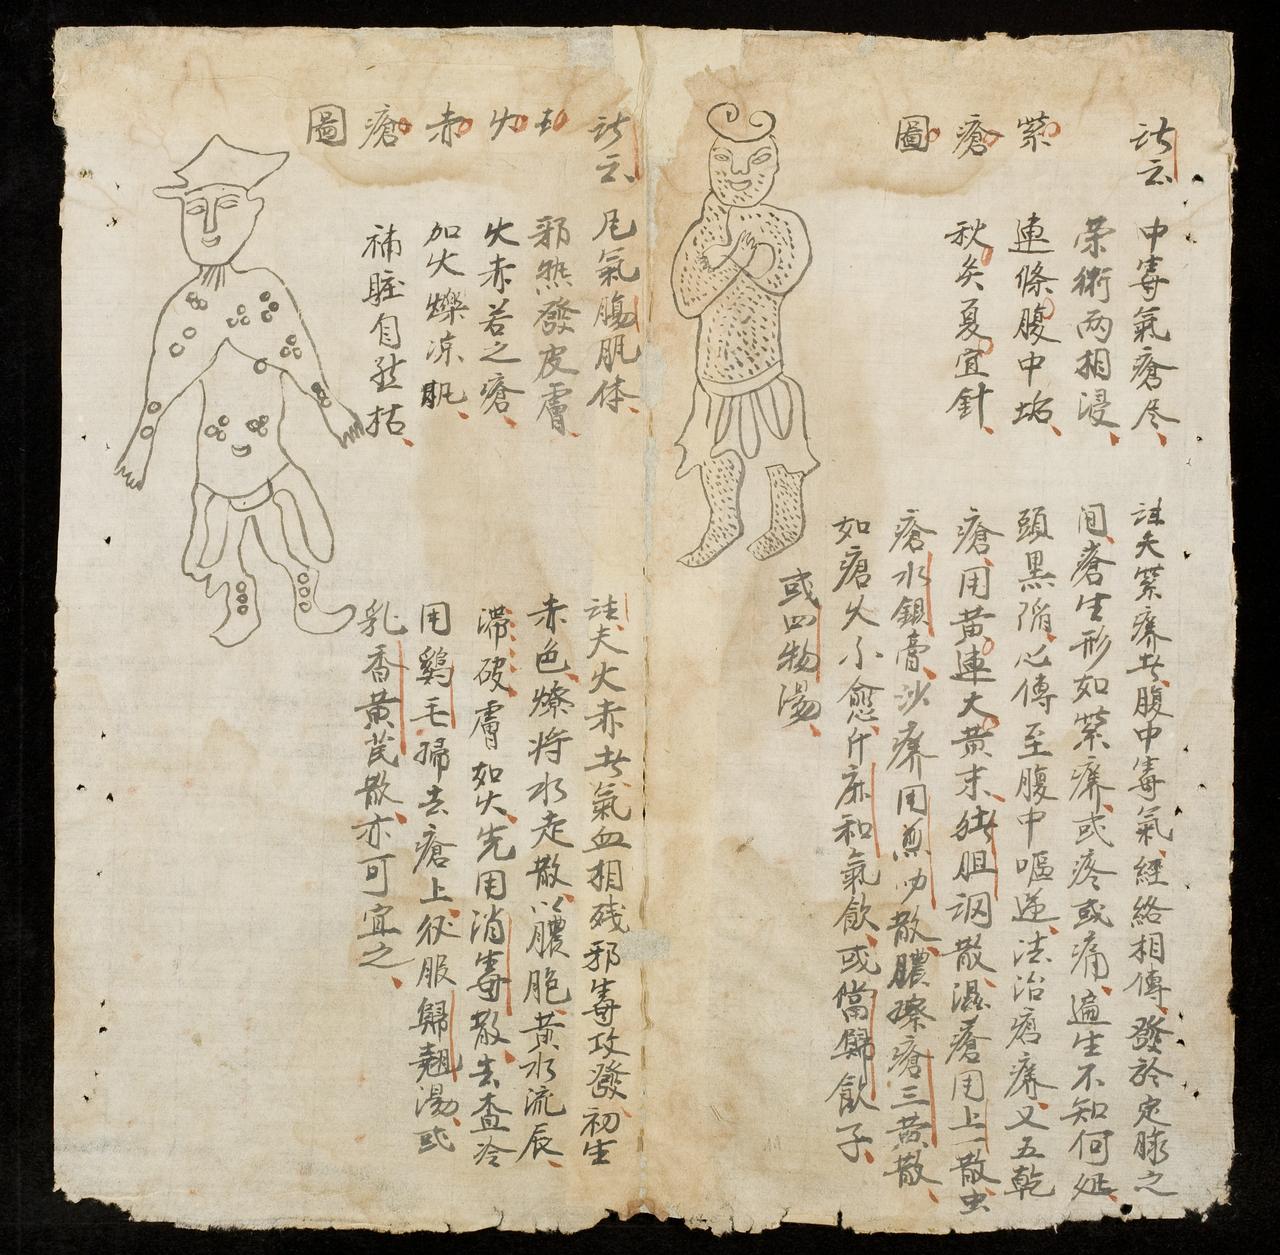 訣云
中毒氣瘡尽
荣術两相浸
連條腹中垢
秋灸夏宜針
瘡
圖
註夫蒙癢者腹中毒氣經絡相傳發於定膝之
间瘡生形如蒙癢或疼或痛遍生不知何延
頭黒陷心傳至腹中嘔逆法治瘡癢又五乾
瘡用黄連大黄末猪胆调散濕瘡用上一散虫
瘡水銀膏沙癢用煎功散膿瘰瘡三黄散
如瘡火不愈升麻和氣飲或當歸飲子
或四物湯
訣云
凡氣腸肌体
邪热發皮膚
火赤若之瘡
加火爍凉肌
補臟自然枯
火
赤
瘡
圖
註夫火赤者氣血相残邪毒攻發初生
赤色燎将水走散以膿胞黄水流辰
滞破膚如火先用消毒散去查冷
用鷄毛掃去瘡上后服歸翹湯或
乳香黄芪散亦可宜之